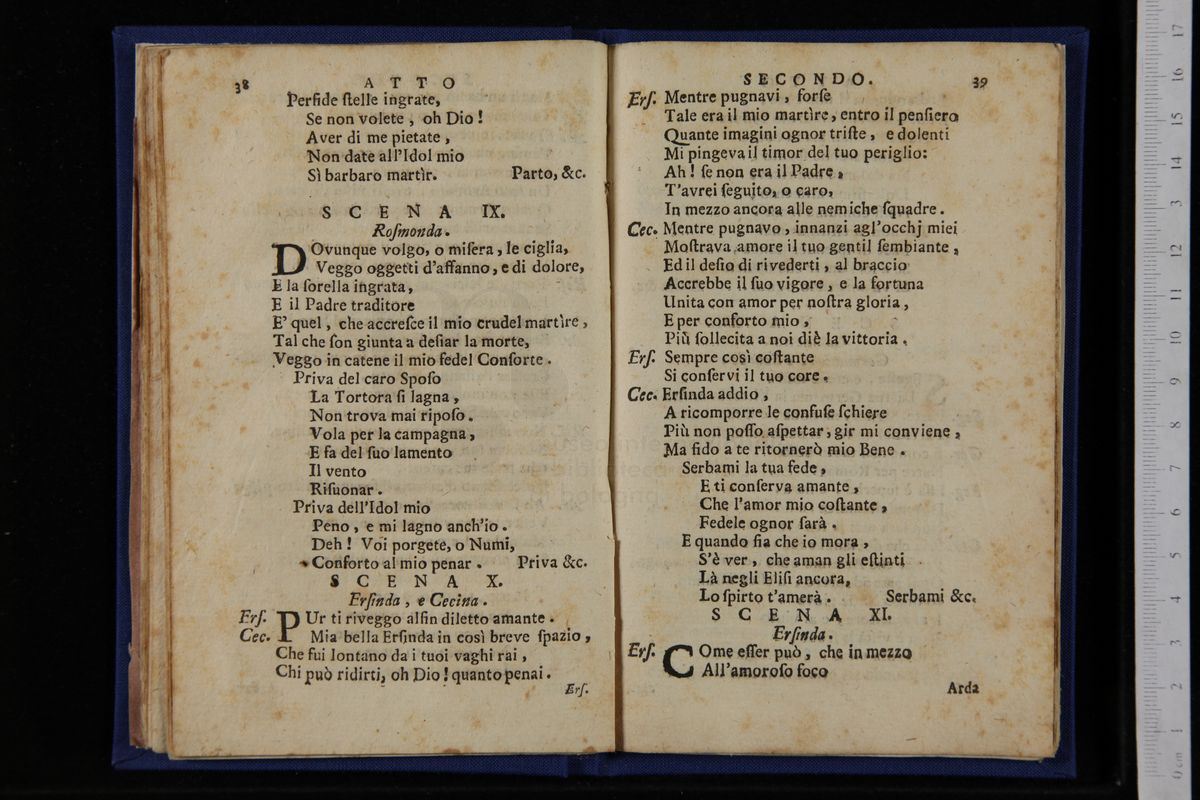 38 ATTO
Perfide ſtelle ingrate,
Se non volete, oh Dio!
Aver di me pietate,
Non date all'Idol mio
Sì barbaro martìr. Parto, &c.
SCENA IX.
Roſmonda.
DOvunque volgo, o miſera, le ciglia,
Veggo oggetti d'affanno, e di dolore,
E la ſorella ingrata,
E il Padre traditore
E' quel, che accreſce il mio crudel martìre,
Tal che ſon giunta a deſiar la morte,
Veggo in catene il mio fedel Conſorte.
Priva del caro Spoſo
La Tortora ſi lagna,
Non trova mai ripoſo.
Vola per la campagna,
E fa del ſuo lamento
Il vento
Riſuonar.
Priva dell'Idol mio
Peno, e mi lagno anch'io.
Deh! Voi porgete, o Numi,
Conforto al mio penar. Priva &c.
SCENA X.
Erſinda, e Cecina.
Erſ. PUr ti riveggo alfin diletto amante.
Cec. Mia bella Erſinda in così breve ſpazio,
Che fui lontano da i tuoi vaghi rai,
Chi può ridirti, oh Dio! quanto penai.
Erſ.
SECONDO. 39
Erſ. Mentre pugnavi, forſe
Tale era il mio martìre, entro il penſiero
Quante imagini ognor triſte, e dolenti
Mi pingeva il timor del tuo periglio:
Ah! ſe non era il Padre,
T'avrei ſeguito, o caro,
In mezzo ancora alle nemiche ſquadre.
Cec. Mentre pugnavo, innanzi agl'occhj miei
Moſtrava amore il tuo gentil ſembiante,
Ed il deſio di rivederti, al braccio
Accrebbe il ſuo vigore, e la fortuna
Unita con amor per noſtra gloria,
E per conforto mio,
Più ſollecita a noi diè la vittoria.
Erſ. Sempre così coſtante
Si conſervi il tuo core.
Cec. Erſinda addio,
A ricomporre le confuſe ſchiere
Più non poſſo aſpettar, gir mi conviene,
Ma fido a te ritornerò mio Bene.
Serbami la tua fede,
E ti conſerva amante,
Che l'amor mio coſtante,
Fedele ognor ſarà.
E quando fia che io mora,
S'è ver, che aman gli eſtinti
Là negli Eliſi ancora,
Lo ſpirto t'amerà. Serbami &c.
SCENA XI.
Erſinda.
Erſ. COme eſſer può, che in mezzo
All'amoroſo foco
Arda